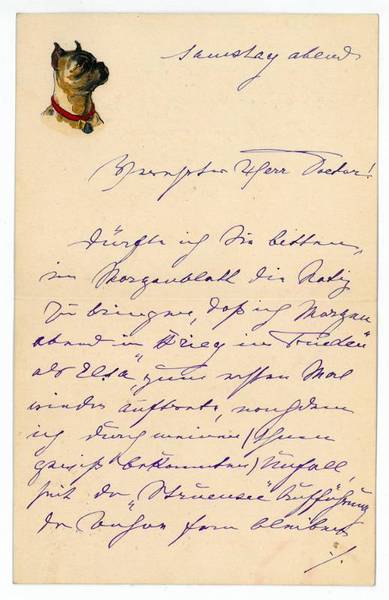 Samstag abend
Verehrter Herr Doctor!
Dürfte ich Sie bitten,
im Morgenblatt die Notiz
zu bringen, daß ich Morgen
abend in „Krieg im Frieden"
als „Elsa" zum ersten Mal
wieder auftrete, nachdem
ich durch meinen (Ihnen
gewiß bekannten) Unfall,
seit der „Struensee" Aufführung
der Bühne fern bleiben
./.